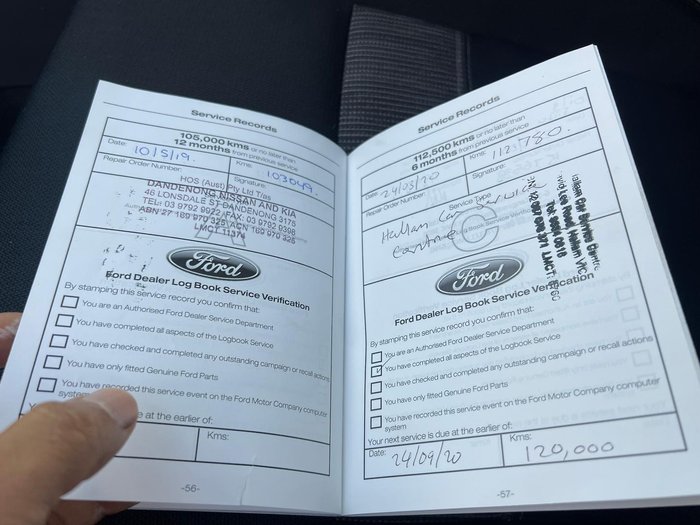 Service Records
105,000 kms or no later than
12 months from previous service
Date: 10/5/19. Kms: 103049.
Repair Order Number: Signature:
HOS (Aust) Pty Ltd T/as
DANDENONG NISSAN AND KIA
46 LONSDALE ST DANDENONG 3175
TEL: 03 9792 9922 FAX: 03 9792 9398
ABN 27 169 970 325 ACN 169 970 325
LMCT 11374
Ford
Ford Dealer Log Book Service Verification
By stamping this service record you confirm that:
You are an Authorised Ford Dealer Service Department
You have completed all aspects of the Logbook Service
You have checked and completed any outstanding campaign or recall actions
You have only fitted Genuine Ford Parts
You have recorded this service event on the Ford Motor Company computer
system
due at the earlier of:
Kms:
-56-
Service Records
112,500 kms or no later than
6 months from previous service
Date: 24/03/20 Kms: 112780.
Repair Order Number: Signature:
Service Type
Hallam Car Service
Centre
Hallam Car Service Centre
Ford
Ford Dealer Log Book Service Verification
By stamping this service record you confirm that:
You are an Authorised Ford Dealer Service Department
You have completed all aspects of the Logbook Service
You have checked and completed any outstanding campaign or recall actions
You have only fitted Genuine Ford Parts
You have recorded this service event on the Ford Motor Company computer
system
Your next service is due at the earlier of:
Date: 24/09/20 Kms: 120,000
-57-